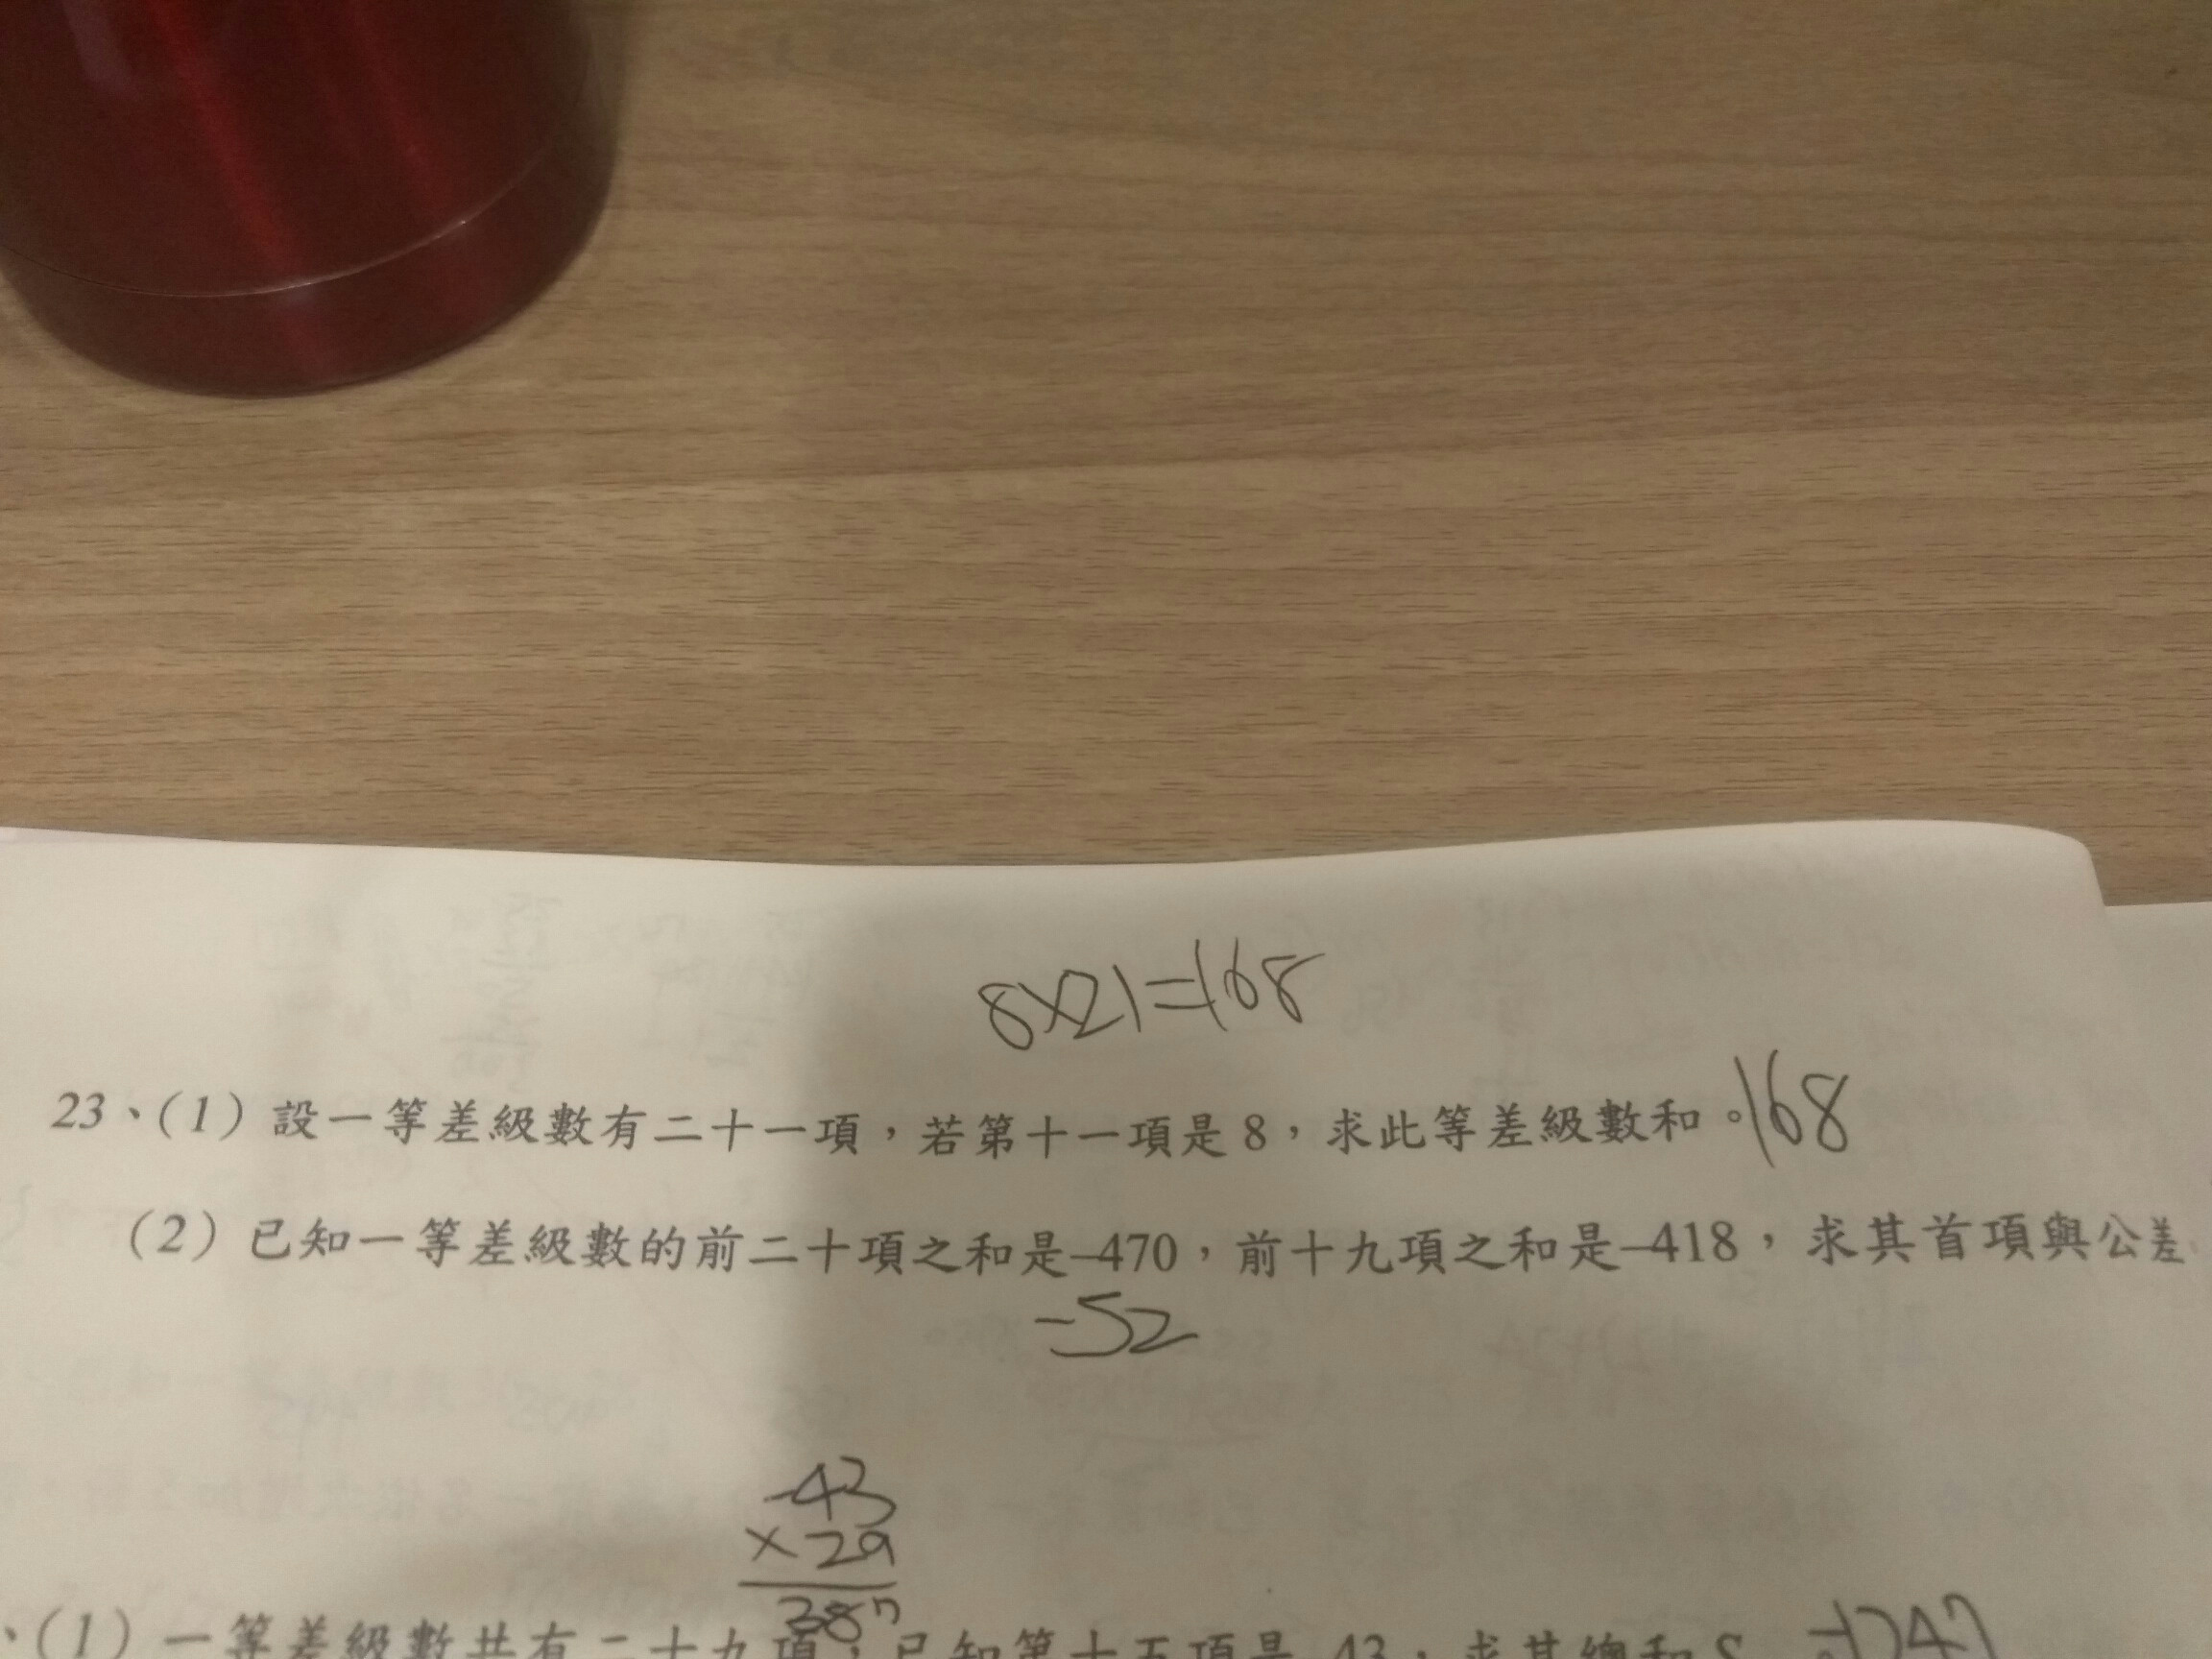 8×21=168
23、(1) 設一等差級數有二十一項，若第十一項是8，求此等差級數和。168
(2) 已知一等差級數的前二十項之和是–470，前十九項之和是–418，求其首項與公差
-52
-43
×29
387
、(1) 一等差級數共有二十九項，已知第十五項是–43，求其總和S
-1247